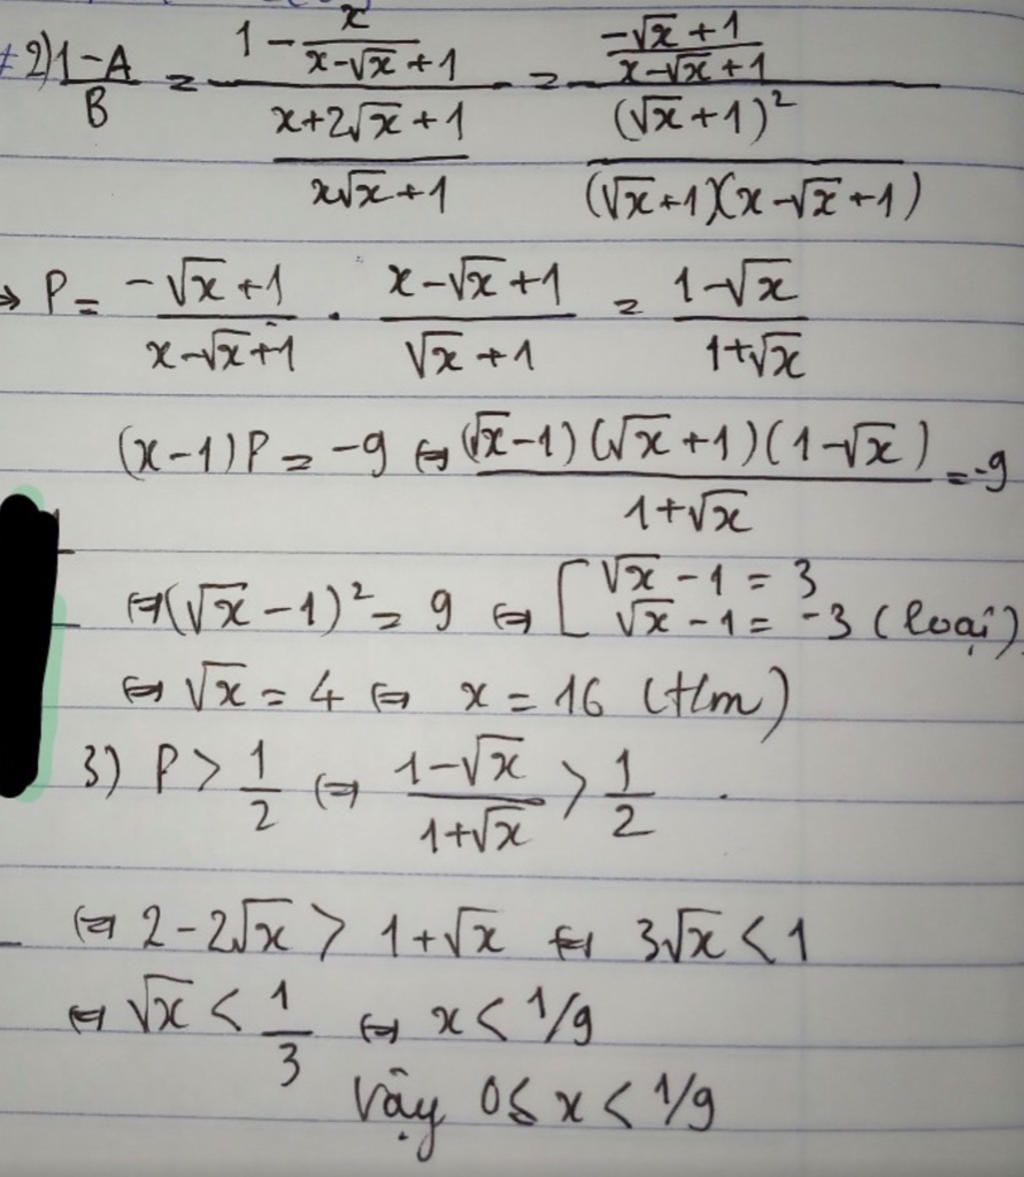 2) (1-A)/B = (1 - x/(x-√x+1)) / ((x+2√x+1)/(x√x+1)) = ((-√x+1)/(x-√x+1)) / ((√x+1)²/((√x+1)(x-√x+1)))
⇒ P = (-√x+1)/(x-√x+1) · (x-√x+1)/(√x+1) = (1-√x)/(1+√x)
(x-1)P = -9 ⇔ (√x-1)(√x+1)(1-√x)/(1+√x) = -9
⇔ (√x-1)² = 9 ⇔ [ √x-1 = 3
√x-1 = -3 (loại)
⇔ √x = 4 ⇔ x = 16 (t/m)
3) P > 1/2 ⇔ (1-√x)/(1+√x) > 1/2
⇔ 2-2√x > 1+√x ⇔ 3√x < 1
⇔ √x < 1/3 ⇔ x < 1/9
Vậy 0 ≤ x < 1/9